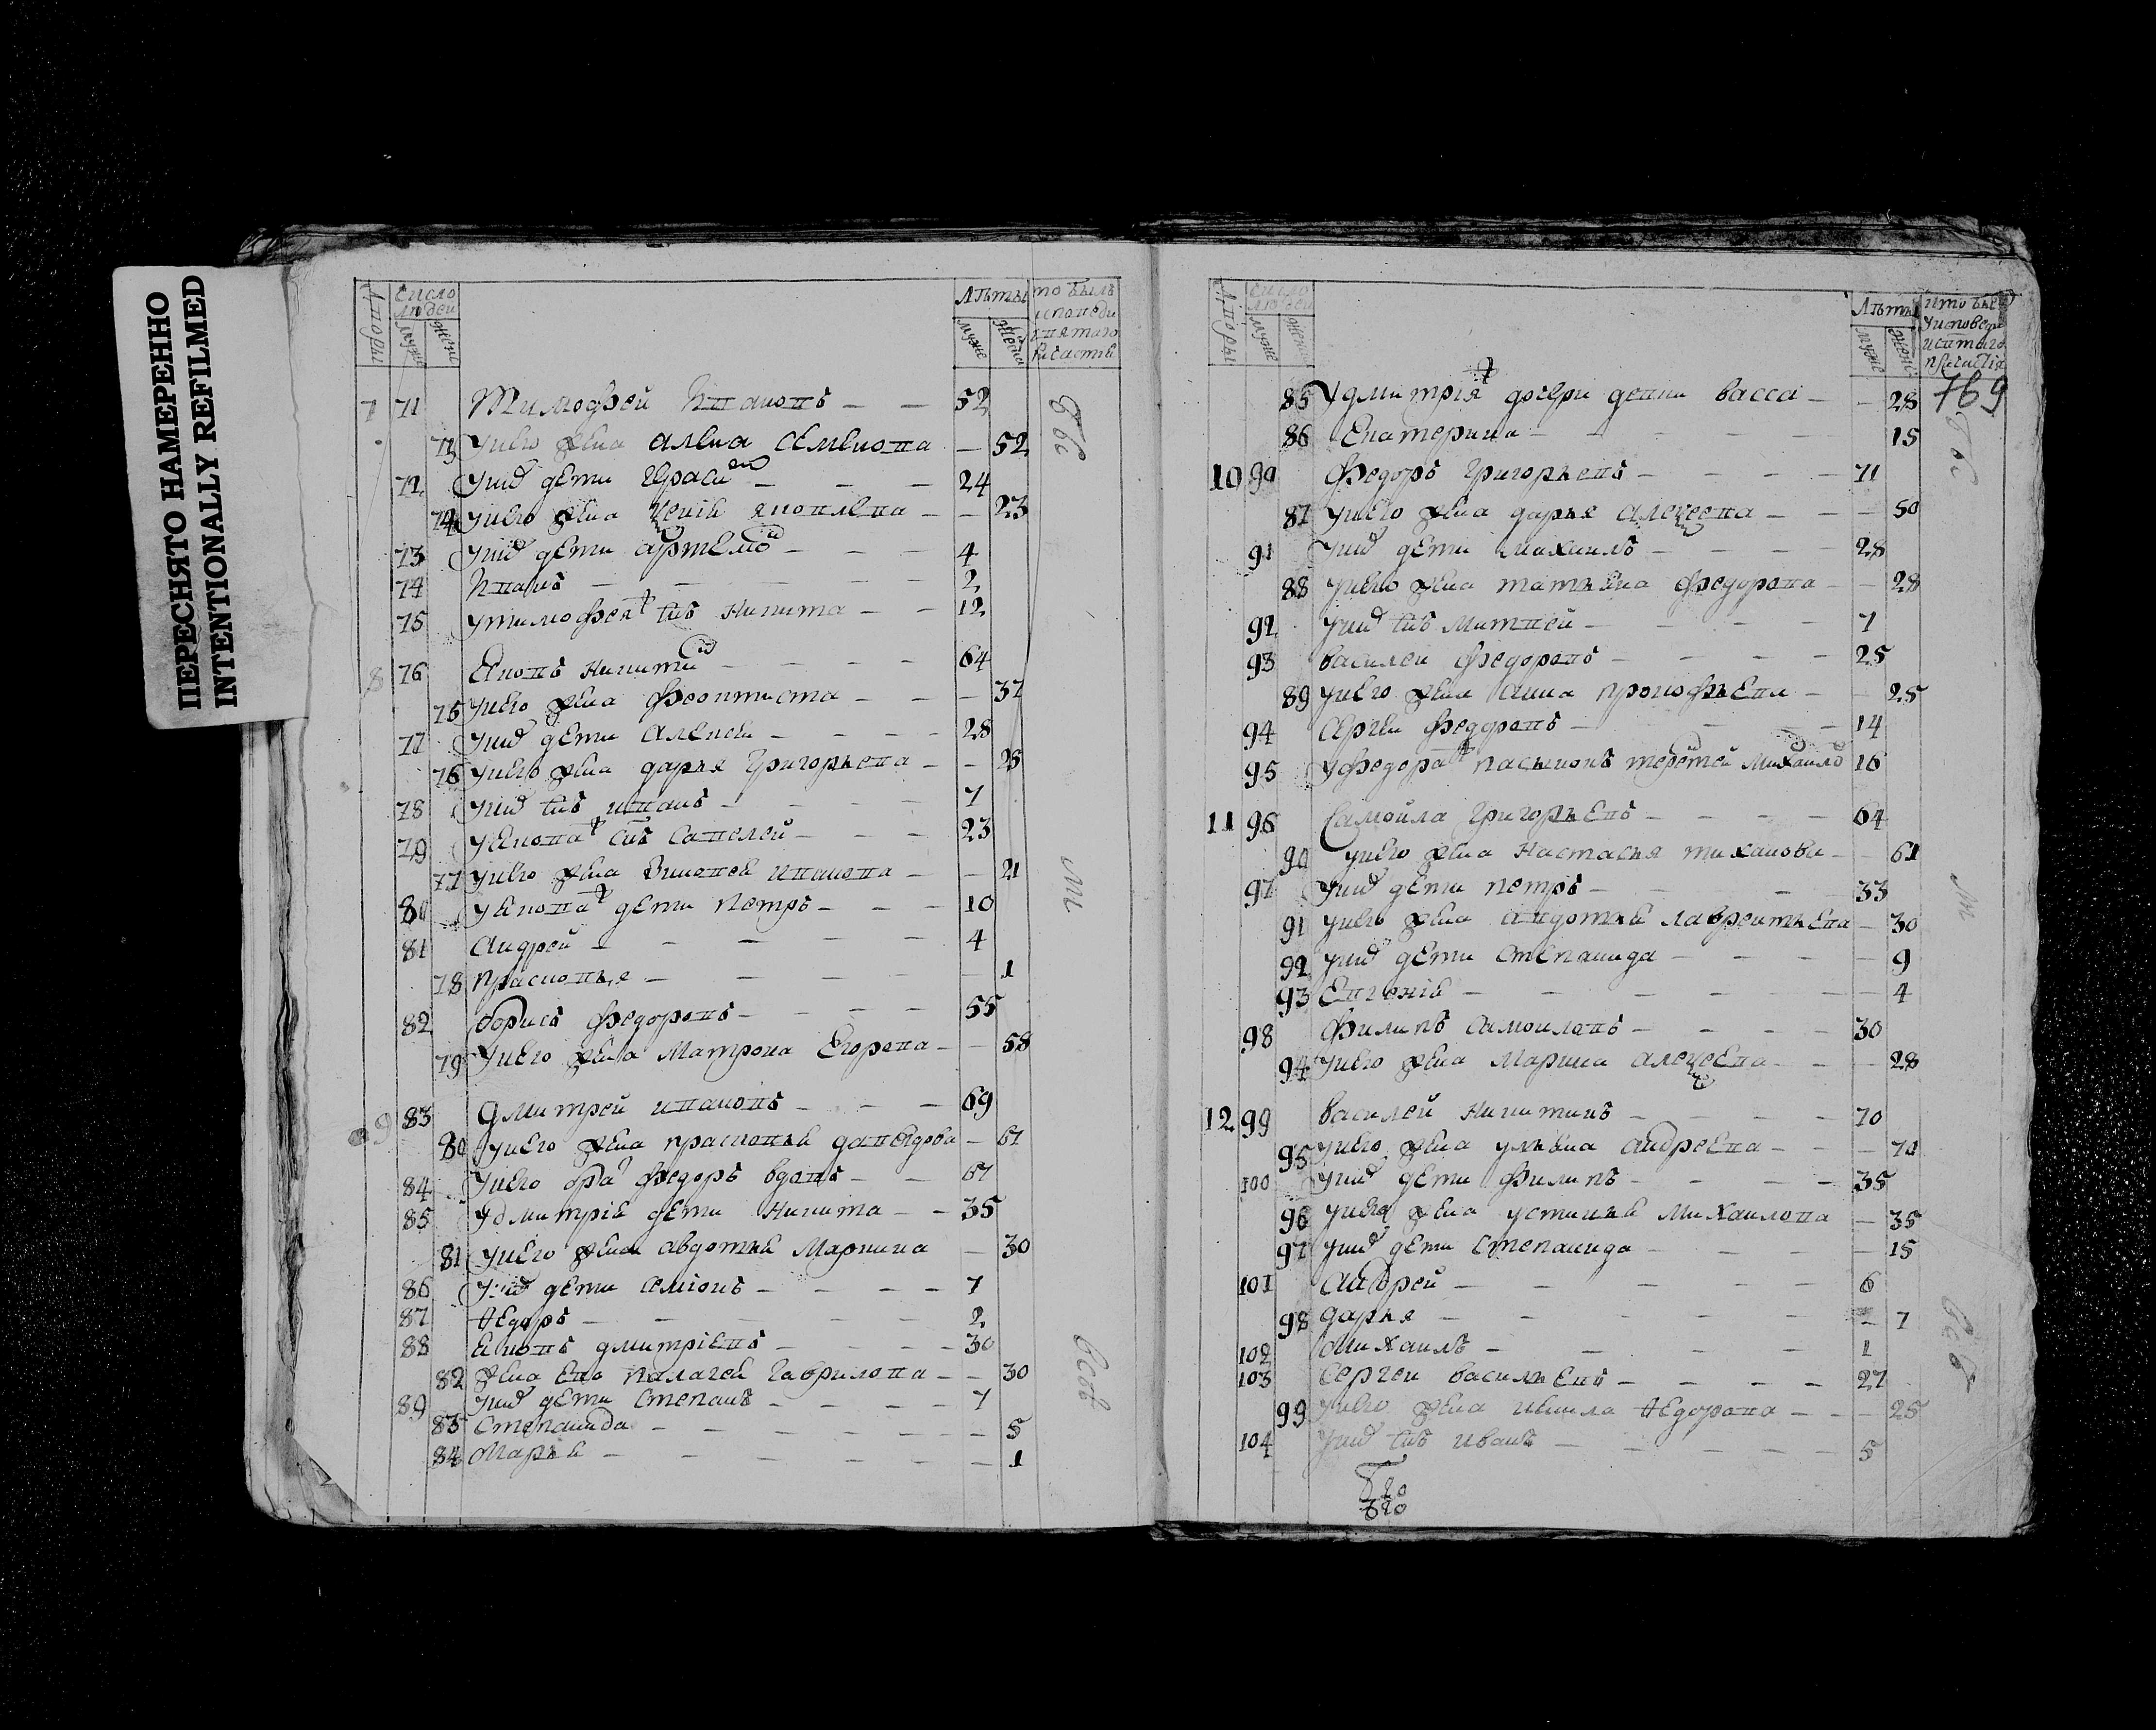 ПЕРЕСНЯТО НАМЕРЕННО
INTENTIONALLY REFILMED
Дворы
Число людей
муже
женс
Лѣты
муже
женс
7 71 Тимофей Ивановъ 52
73 Унего жена Анна Семенова 52
72 Уних дети Герасим 24
74 Унего жена Яковлева 23
73 Уних дети Артемой 4
74 Иванъ 2
75 У Тимофея снъ Никита 12
8 76 Никитин 64
75 Унего жена Феоктиста 37
77 Уних дети Алексеи 28
76 Унего жена Дарья Григорьева 25
78 Уних снъ Иванъ 7
79 снъ Савелей 23
77 Унего жена Иванова 21
80 дети Петръ 10
81 Андрей 4
78 Прасковья 1
82 Борисъ Федоровъ 55
79 Унего жена Матрона Егорева 58
9 83 Дмитрей Ивановъ 69
80 Унего жена Прасковья Давыдова 61
84 Унего бра Федоръ вдовъ 61
85 У Дмитрія дети Никита 35
81 Унего жена Авдотья Маркина 30
86 Уних дети Семіонъ 7
87 Ѳедоръ 2
88 Дмитріевъ 30
82 Жена ево Палагея Гаврилова 30
89 Уних дети Степанъ 7
83 Степанида 5
84 Марья 1
всѣ
Дворы
Число людей
муже
женс
Лѣты
муже
женс
769
85 У Дмитрія дочери девки Васса 28
86 Екатерина 15
10 90 Федоръ Григорьевъ 71
87 Унего жена Дарья Алексеева 50
91 Уних дети Михаилъ 28
88 Унего жена Татьяна Федорова 28
92 Уних снъ Матвей 7
93 Василеи Федоровъ 25
89 Унего жена Анна Прокофьева 25
94 Сергеи Федоровъ 14
95 У Федора Михаило 16
11 96 Самойла Григорьевъ 64
90 Унего жена Настасья 61
97 Уних дети Петръ 33
91 Унего жена Авдотья Лаврентьева 30
92 Уних дети Степанида 9
93 Евгенія 4
98 Филипъ Самоиловъ 30
94 Унего жена Марина Алексеева 28
12 99 Василей Никитинъ 70
95 Унего жена Ульяна Андреева 70
100 Уних дети Филипъ 35
96 Унего жена Устинья Михаилова 35
97 Уних дети Степанида 15
101 Андрей 6
98 Дарья 7
102 Михаилъ 1
103 Сергеи Васильевъ 27
99 Унего жена Ѳедорова 25
104 Уних снъ Иванъ 5